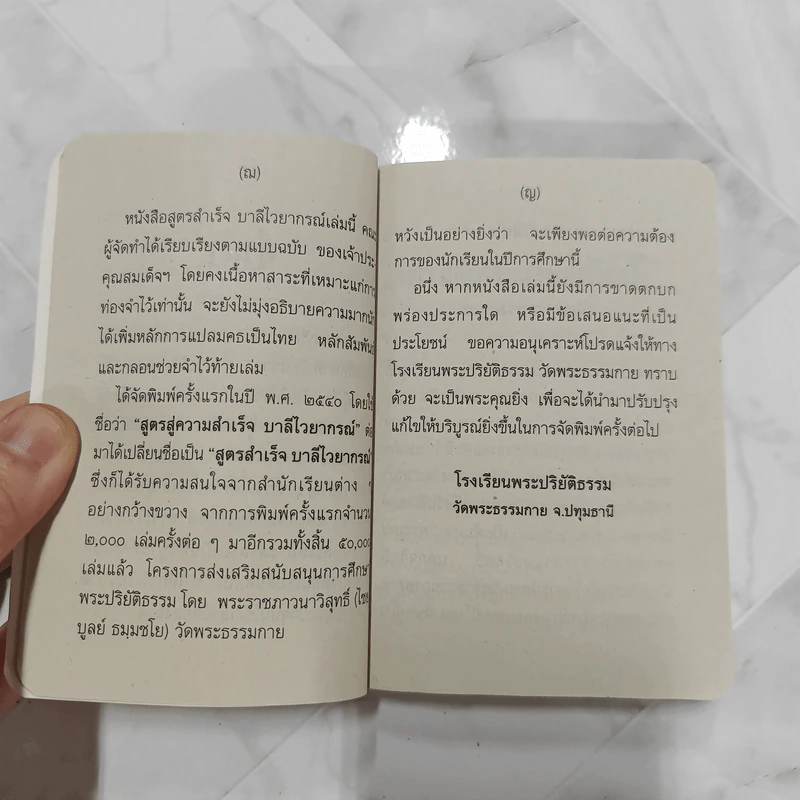 (ฌ)
หนังสือสูตรสำเร็จ บาลีไวยากรณ์เล่มนี้ คณะ
ผู้จัดทำได้เรียบเรียงตามแบบฉบับ ของเจ้าประ
คุณสมเด็จฯ โดยคงเนื้อหาสาระที่เหมาะแก่การ
ท่องจำไว้เท่านั้น จะยังไม่มุ่งอธิบายความมากนัก
ได้เพิ่มหลักการแปลมคธเป็นไทย หลักสัมพันธ์
และกลอนช่วยจำไว้ท้ายเล่ม
ได้จัดพิมพ์ครั้งแรกในปี พ.ศ. ๒๕๔๐ โดยใช้
ชื่อว่า “สูตรสู่ความสำเร็จ บาลีไวยากรณ์” ต่อ
มาได้เปลี่ยนชื่อเป็น “สูตรสำเร็จ บาลีไวยากรณ์
ซึ่งก็ได้รับความสนใจจากสำนักเรียนต่าง ๆ
อย่างกว้างขวาง จากการพิมพ์ครั้งแรกจำนวน
๒,๐๐๐ เล่มครั้งต่อ ๆ มาอีกรวมทั้งสิ้น ๕๐,๐๐๐
เล่มแล้ว โครงการส่งเสริมสนับสนุนการศึกษา
พระปริยัติธรรม โดย พระราชภาวนาวิสุทธิ์ (ไชย
บูลย์ ธมฺมชโย) วัดพระธรรมกาย
(ญ)
หวังเป็นอย่างยิ่งว่า จะเพียงพอต่อความต้อง
การของนักเรียนในปีการศึกษานี้
อนึ่ง หากหนังสือเล่มนี้ยังมีการขาดตกบก
พร่องประการใด หรือมีข้อเสนอแนะที่เป็น
ประโยชน์ ขอความอนุเคราะห์โปรดแจ้งให้ทาง
โรงเรียนพระปริยัติธรรม วัดพระธรรมกาย ทราบ
ด้วย จะเป็นพระคุณยิ่ง เพื่อจะได้นำมาปรับปรุง
แก้ไขให้บริบูรณ์ยิ่งขึ้นในการจัดพิมพ์ครั้งต่อไป
โรงเรียนพระปริยัติธรรม
วัดพระธรรมกาย จ.ปทุมธานี